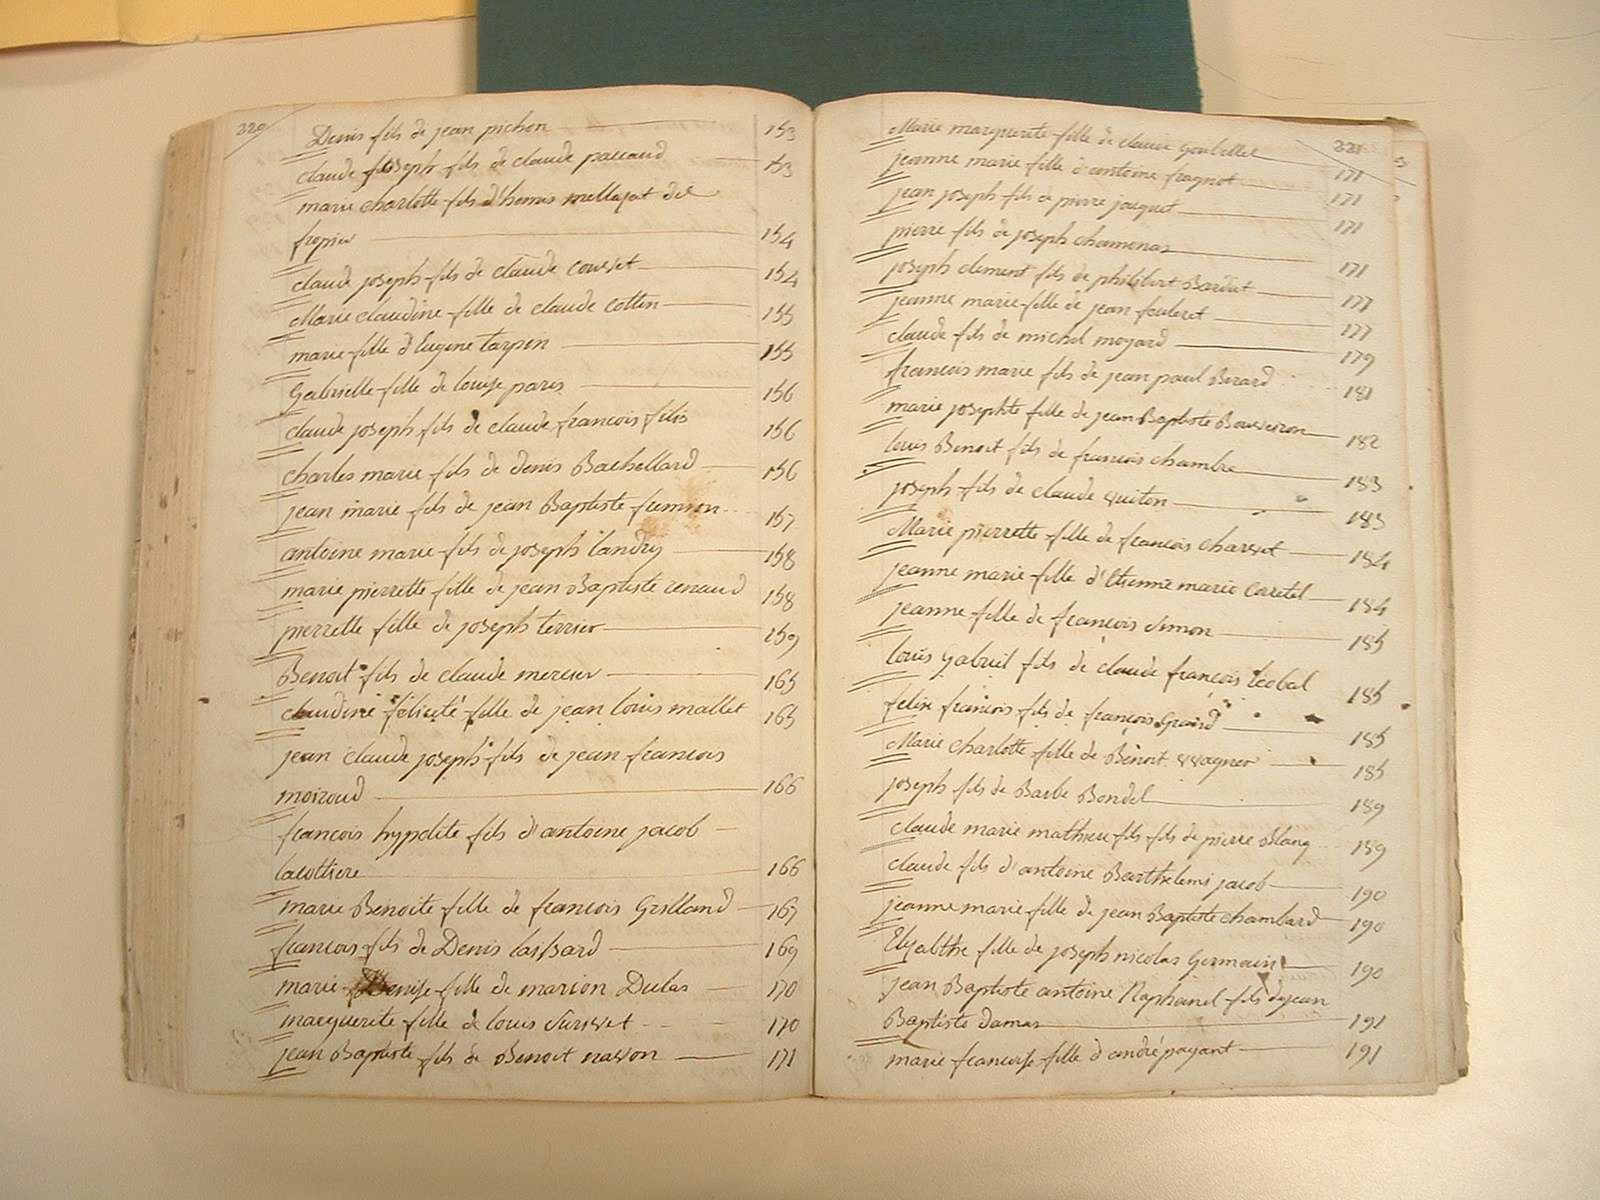 220
Denis fils de jean pichon 153
claude joseph fils de claude paccaud 153
marie charlotte fils d'homus mellajat del
fropier 154
claude joseph fils de claude couvet 154
Marie claudine fille de claude Cottin 155
marie fille d'Eugene tarpin 155
Gabrielle fille de louise paris 156
claude joseph fils de claude francois filis 156
charles marie fils de denis Bachellard 156
jean marie fils de jean Baptiste fumion 157
antoine marie fils de joseph landry 158
marie pierrette fille de jean Baptiste renaud 158
pierrette fille de joseph terrier 159
Benoit fils de claude mercier 165
claudine felicité fille de jean louis mallet 165
jean claude joseph fils de jean francois
moiroud 166
francois hypolite fils d'antoine jacob
lacottiere 166
marie Benoite fille de francois Grilland 167
francois fils de Denis 169
marie Denise fille de marion Dulas 170
marguerite fille de louis 170
jean Baptiste fils de Benoit navion 171
221
Marie marguerite fille de claude Goubillet 171
jeanne marie fille d'antoine fragnot 171
jean joseph fils de pierre jacquet 171
pierre fils de joseph chamenas 171
joseph clement fils de philibert Bardet 177
jeanne marie fille de jean feuleret 177
claude fils de michel moyard 179
francois marie fils de jean paul Berard 181
marie josephte fille de jean Baptiste 182
louis Benoit fils de francois chambre 183
joseph fils de claude vuiton 183
Marie pierrette fille de francois charvet 184
jeanne marie fille d'Etienne marie Corretel 184
jeanne fille de francois simon 185
louis gabriel fils de claude françois 185
felix francois fils de francois Grand 185
Marie charlotte fille de Benoit vvagner 185
joseph fils de Barbe Bondel 189
claude marie mathieu fils fils de pierre Blanq 189
claude fils d'antoine Barthelemi jacob 190
jeanne marie fille de jean Baptiste chambard 190
Elizabthe fille de joseph nicolas Germain 190
jean Baptiste antoine Raphanel fils de jean
Baptiste damas 191
marie francoise fille d'andré payant 191